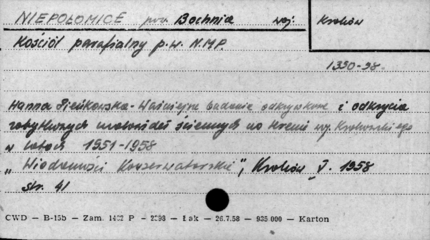 NIEPOŁOMICE pow. Bochnia woj. Kraków
Kościół parafialny p.w. N.MP.
1350-98.
Hanna Pieńkowska - Ważniejsze badania odkrywkowe i odkrycia
zabytkowych malowideł ściennych na terenie woj. Krakowskiego
w latach 1951-1958
„Wiadomości Konserwatorskie", Kraków I. 1958
str. 41
CWD — B-15b — Zam. P — — Łak — 26.7.58 — 935.000 — Karton